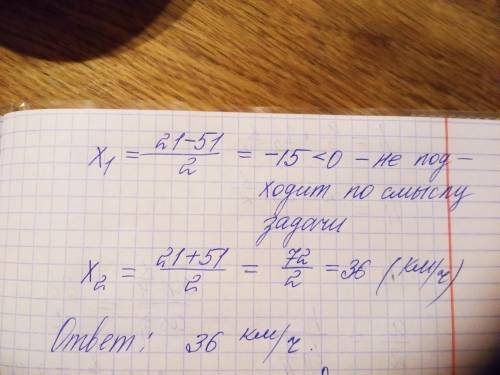 x₁ = (21-51)/2 = -15 < 0 - не под-
ходит по смыслу
задачи
x₂ = (21+51)/2 = 72/2 = 36 (км/ч)
Ответ: 36 км/ч.